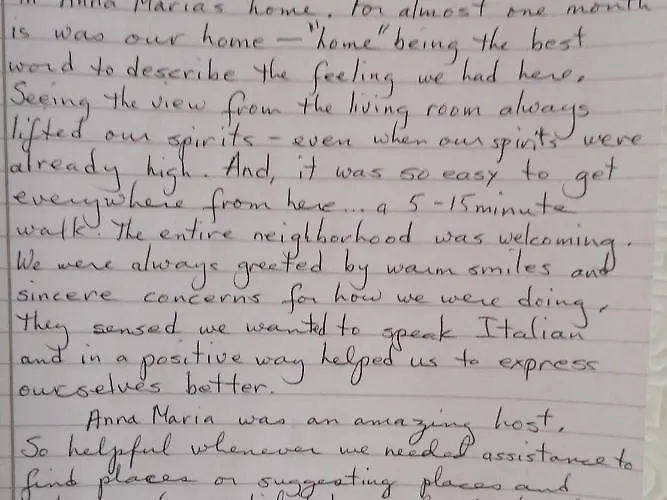 in Anna Marias home. For almost one month
is was our home – "home" being the best
word to describe the feeling we had here.
Seeing the view from the living room always
lifted our spirits – even when our spirits were
already high. And, it was so easy to get
everywhere from here... a 5-15 minute
walk. The entire neighborhood was welcoming.
We were always greeted by warm smiles and
sincere concerns for how we were doing.
They sensed we wanted to speak Italian
and in a positive way helped us to express
ourselves better.
Anna Maria was an amazing host.
So helpful whenever we needed assistance to
find places or suggesting places and